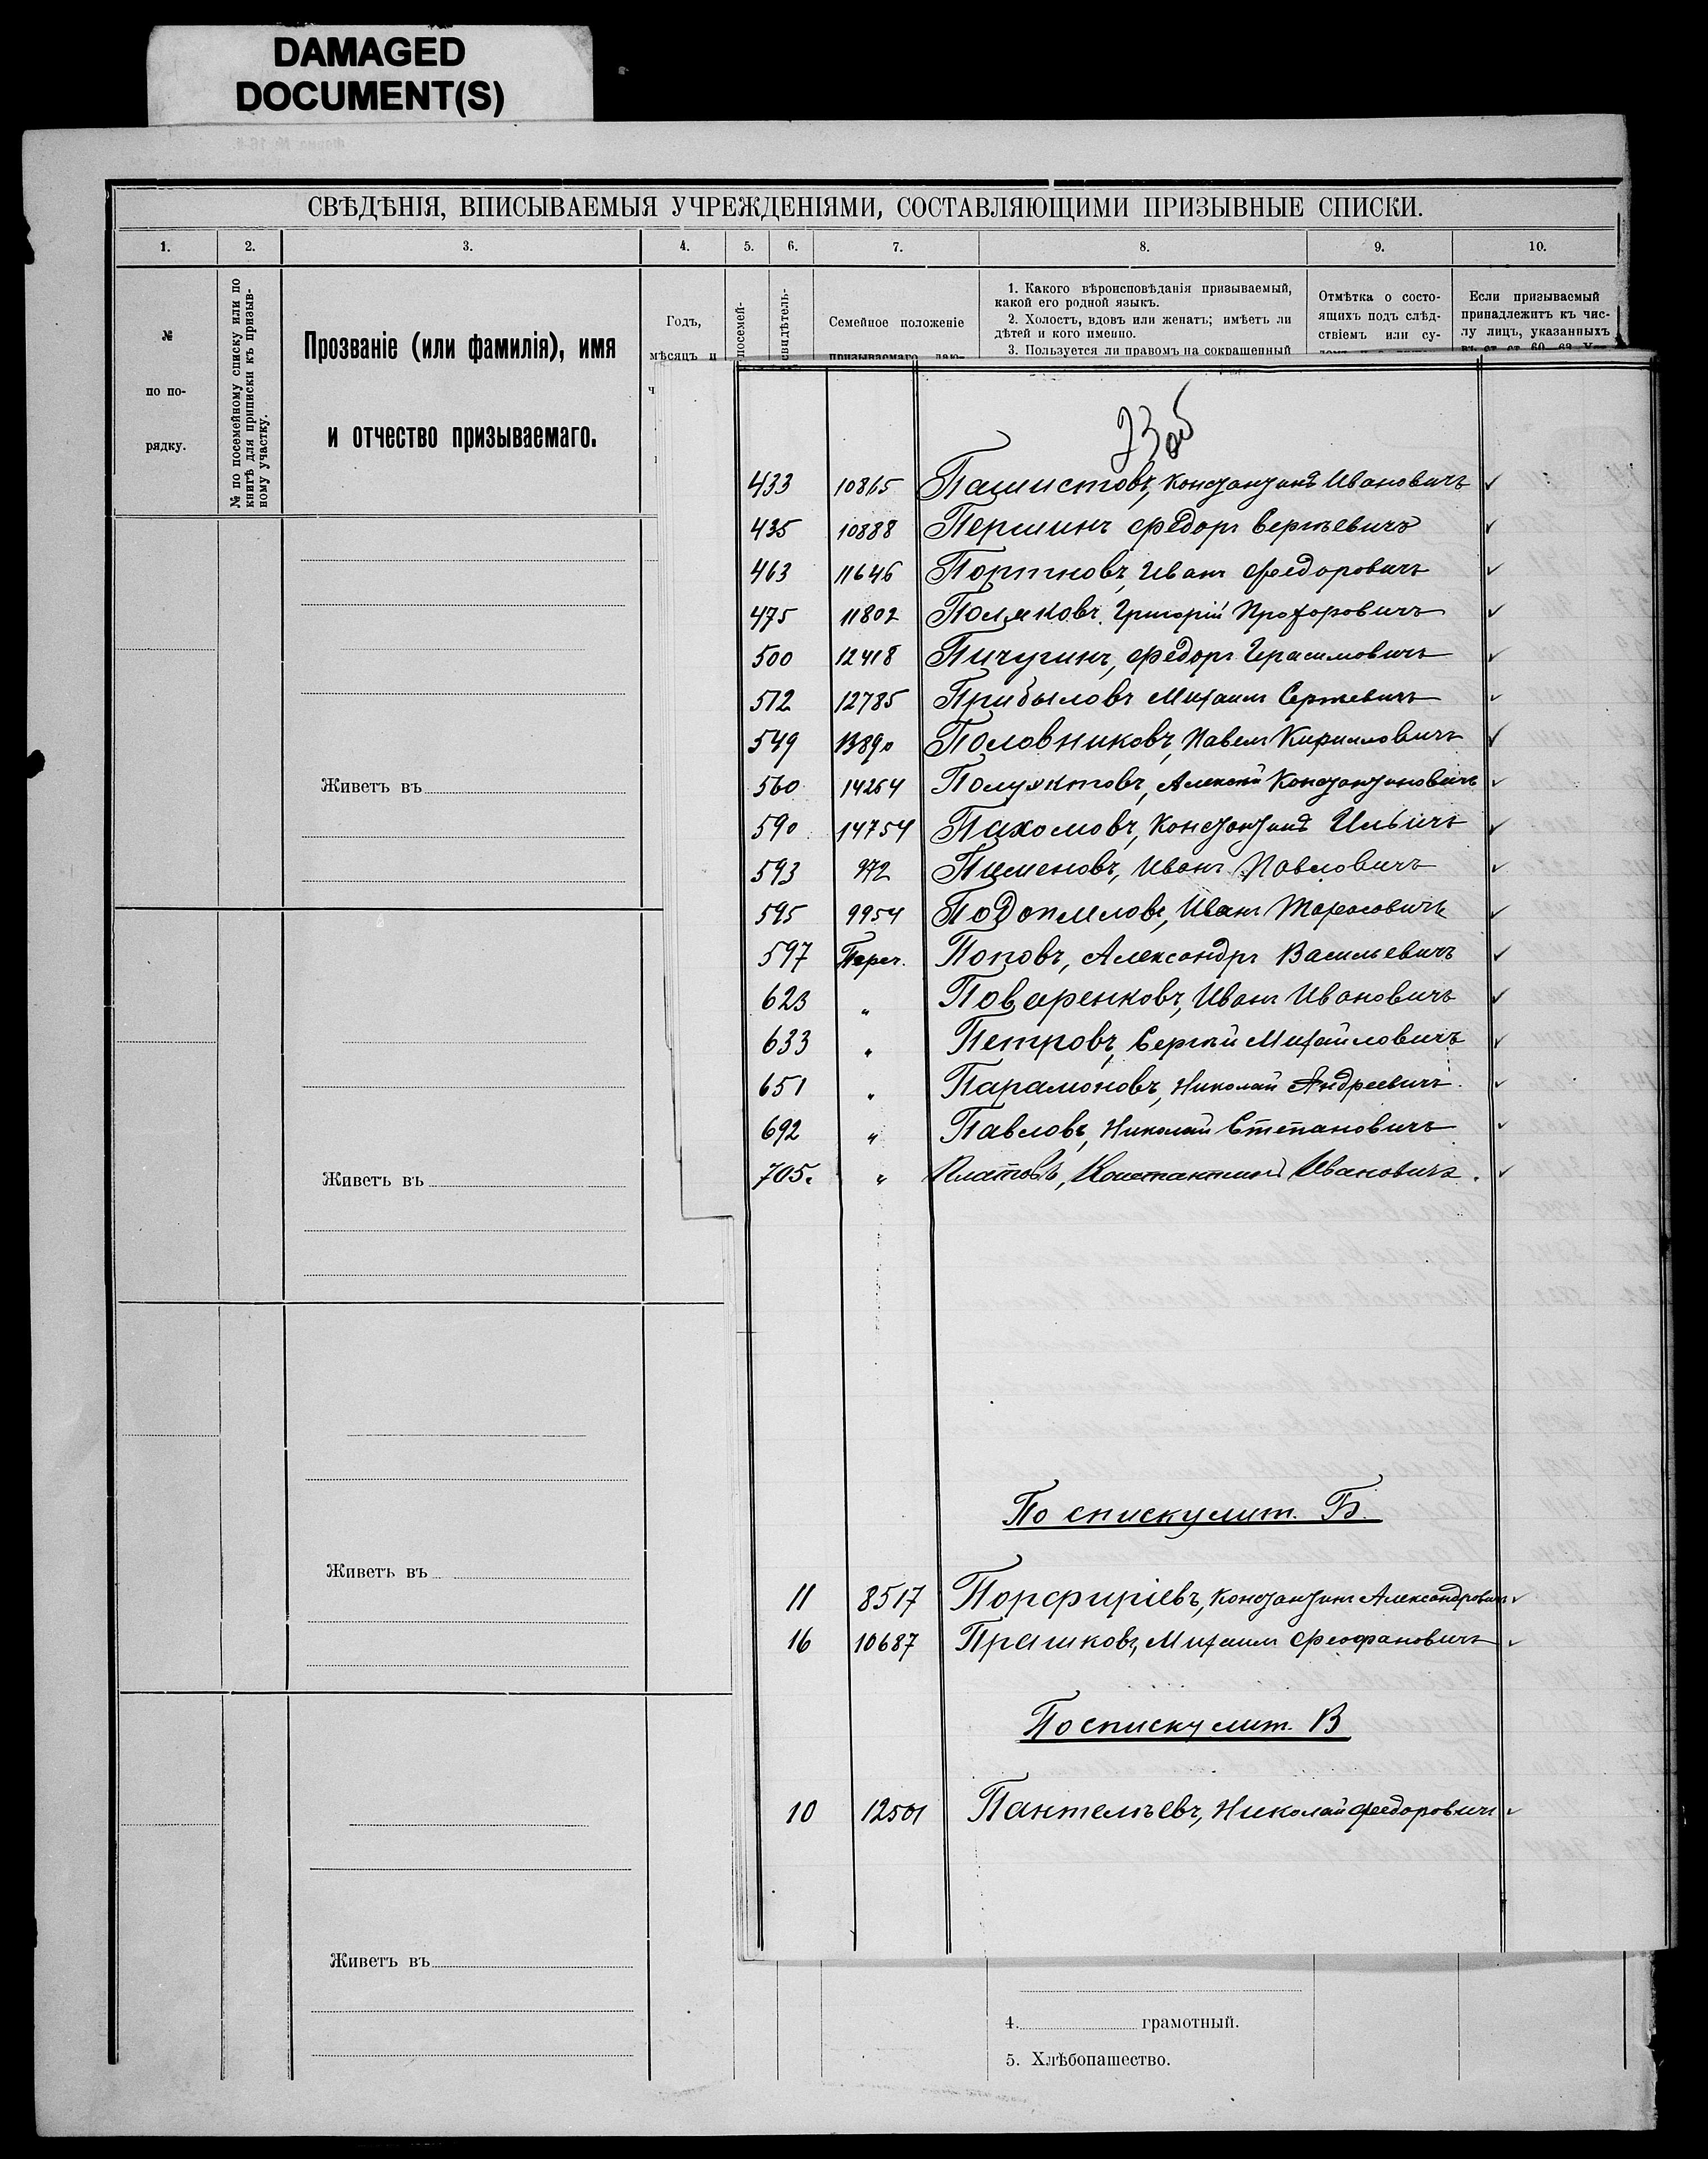 DAMAGED
DOCUMENT(S)
СВѢДѢНІЯ, ВПИСЫВАЕМЫЯ УЧРЕЖДЕНІЯМИ, СОСТАВЛЯЮЩИМИ ПРИЗЫВНЫЕ СПИСКИ.
1. 2. 3. 4. 5. 6. 7. 8. 9. 10.
№
по по-
рядку.
№ по посемейному списку или по
книгѣ для приписки къ призыв-
ному участку.
Прозваніе (или фамилія), имя
и отчество призываемаго.
Годъ,
мѣсяцъ и
посемей-
свидѣтель-
Семейное положеніе
призываемаго, даю-
1. Какого вѣроисповѣданія призываемый,
какой его родной языкъ.
2. Холостъ, вдовъ или женатъ; имѣетъ ли
дѣтей и кого именно.
3. Пользуется ли правомъ на сокращенный
Отмѣтка о состо-
ящихъ подъ слѣд-
ствіемъ или су-
Если призываемый
принадлежитъ къ чис-
лу лицъ, указанныхъ
въ ст. ст. 60, 63 Уст.
23 об
433 10865 Пашистовъ, Константинъ Ивановичъ ✓
435 10888 Першинъ Федоръ Сергѣевичъ ✓
463 11646 Портновъ, Иванъ Феодоровичъ ✓
475 11802 Поляковъ, Григорій Прохоровичъ ✓
500 12418 Пичугинъ, Федоръ Герасимовичъ ✓
512 12785 Прибыловъ Михаилъ Сергѣевичъ ✓
549 13890 Половниковъ, Павелъ Кирилловичъ ✓
560 14264 Полуэктовъ, Алексѣй Константиновичъ ✓
590 14754 Пахомовъ, Константинъ Ильичъ ✓
593 972 Пименовъ, Иванъ Павловичъ ✓
595 9954 Иванъ Тарасовичъ ✓
597 Переч. Поповъ, Александръ Васильевичъ ✓
623 " Поваренковъ, Иванъ Ивановичъ ✓
633 " Петровъ, Сергѣй Михайловичъ ✓
651 " Парамоновъ, Николай Андреевичъ ✓
692 " Павловъ, Николай Степановичъ ✓
705. " Платовъ, Константинъ Ивановичъ. ✓
По списку лит. Б.
11 8517 Порфиріевъ, Константинъ Александровичъ ✓
16 10687 Прашковъ, Михаилъ Феофановичъ ✓
По списку лит. В
10 12501 Пантелѣевъ, Николай Феодоровичъ ✓
Живетъ въ
Живетъ въ
Живетъ въ
Живетъ въ
4. грамотный.
5. Хлѣбопашество.